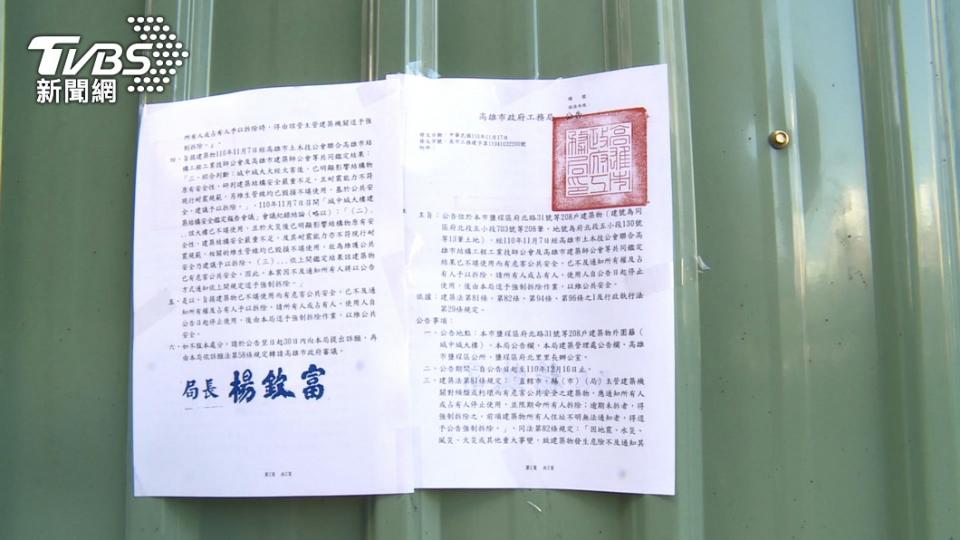 TVBS
新聞網
檔 號
保存年限
高雄市政府工務局 公告
發文日期：中華民國110年11月17日
發文字號：高市工務建字第11041032200號
附件：
主旨：公告位於本市鹽埕區府北路31號等208戶建築物（建號為同
區府北段五小段703號等208筆，地號為府北段五小段130號
等13筆土地），經110年11月7日經高雄市土木技公會聯合高
雄市結構工程工業技師公會及高雄市建築師公會等共同鑑定
結果已不堪使用而有危害公共安全，已不及通知所有權及占
有人予以拆除，請所有人或占有人、使用人自公告日起停止
使用，復由本局逕予強制拆除作業，以維公共安全。
依據：建築法第81條、第82條、第94條、第96條之1及行政執行法
第29條規定。
公告事項：
一、公告地點：本市鹽埕區府北路31號等208戶建築物外圍籬（
城中城大樓）、本局公告欄、本局建築管理處公告欄、高雄
市鹽埕區公所、鹽埕區府北里里長辦公室。
二、公告期間：自公告日起至110年12月16日止。
三、建築法第81條規定：「直轄市、縣（市）（局）主管建築機
關對傾頹或朽壞而有危害公共安全之建築物，應通知所有人
或占有人停止使用，並限期命所有人拆除；逾期未拆者，得
強制拆除之。前項建築物所有人住址不明無法通知者，得逕
予公告強制拆除。」、同法第82條規定：「因地震、水災、
風災、火災或其他重大事變，致建築物發生危險不及通知其
第1頁 共2頁
所有人或占有人予以拆除時，得由該管主管建築機關逕予強
制拆除。」。
四、旨揭建築物110年11月7日經高雄市土木技公會聯合高雄市結
構工程工業技師公會及高雄市建築師公會等共同鑑定結果：
「三、綜合判斷：城中城大火經火害後，已明顯影響結構物
原有安全性，研判建築結構安全嚴重不足，且耐震能力不符
現行耐震規範，另維生管線均已毀損不堪使用，基於公共安
全，建議予以拆除。」、110年11月7日召開「城中城大樓建
築結構安全鑑定報告會議」會議紀錄結論（略以）：「（二）、
…該大樓已不堪使用，且於火災後已明顯影響結構物原有安
全性，建築結構安全嚴重不足，及其耐震能力亦不符現行耐
震規範，相關維生管線均已毀損不堪使用，故為維護公共
安全乃建議予以拆除。（三）…依上開鑑定結果該建築物
已有危害公共安全，因此，本案因不及通知所有人將以公告
方式通知依上開規定逕予強制拆除。」
五、是以，旨揭建築物已不堪使用而有危害公共安全，已不及通
知所有權及占有人予以拆除，請所有人或占有人、使用人自
公告日起停止使用，復由本局逕予強制拆除作業，以維公共
安全。
六、如不服本處分，請於公告翌日起30日內向本局提出訴願，再
由本局依訴願法第58條規定轉請高雄市政府審議。
局長 楊欽富
第2頁 共2頁